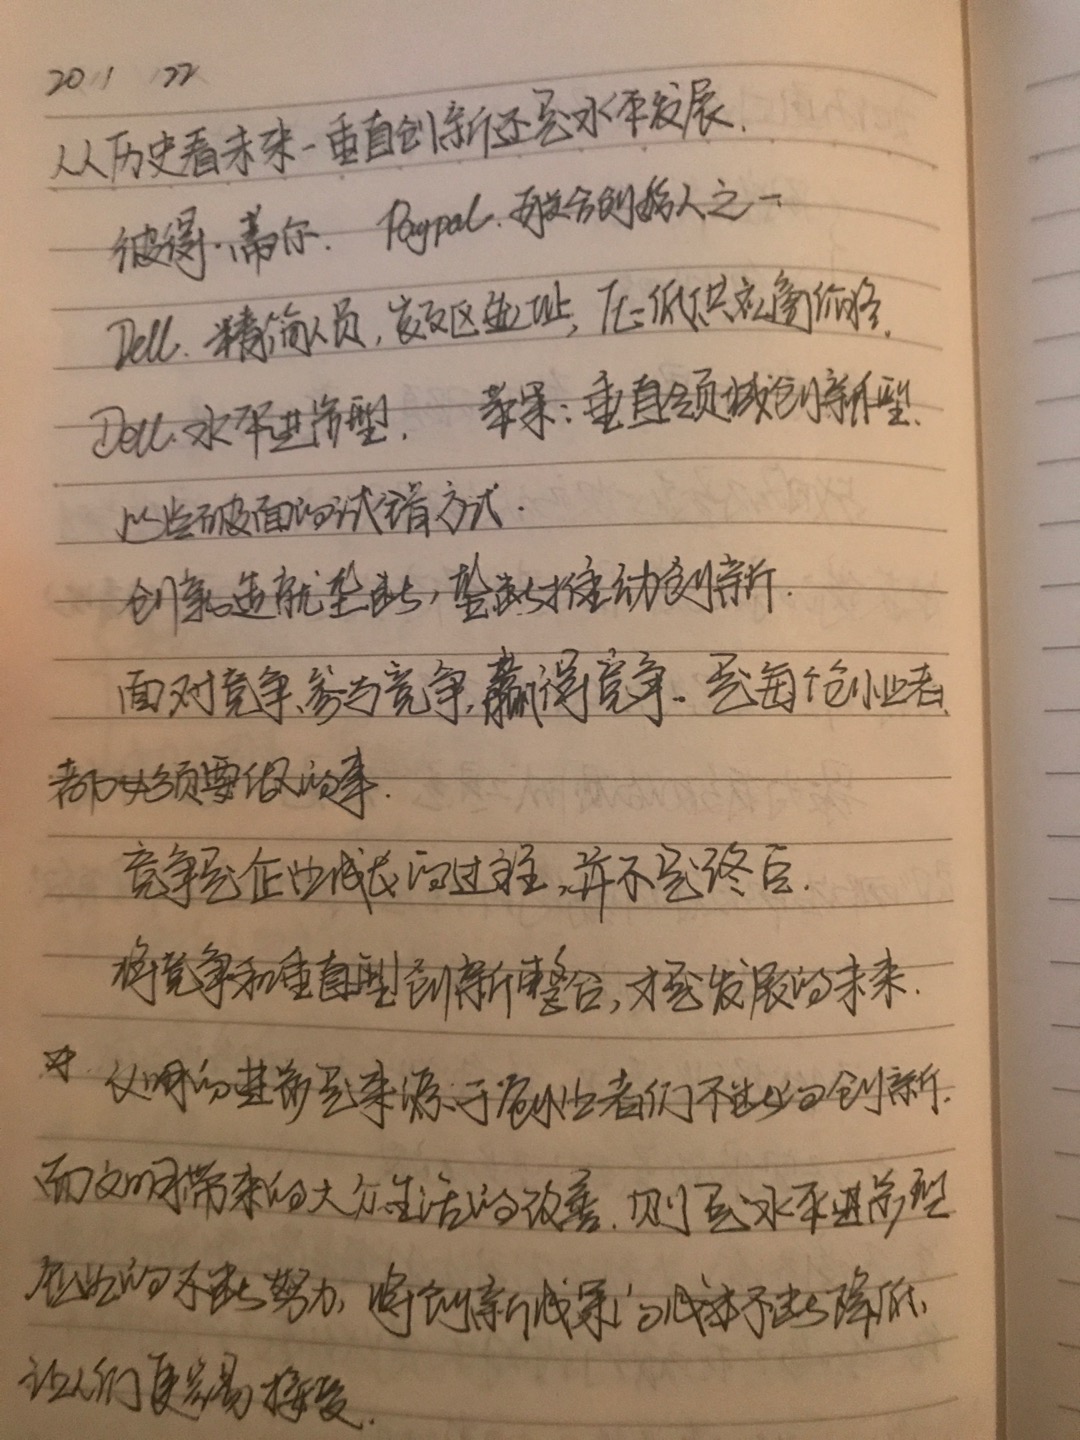 20 1 22
从历史看未来-垂直创新还是水平发展.
彼得·蒂尔. Paypal. 联合创始人之一
Dell. 精简人员,改区地址,压低供应商价格.
Dell.水平进步型. 苹果:垂直领域创新型.
破面的试错方式.
创新造就垄断,垄断推动创新.
面对竞争、参与竞争,赢得竞争. 是每个创业者
都必须要做的事.
竞争是企业成长的过程,并不是终点.
将竞争和垂直型创新整合,才是发展的未来.
文明的进步是来源于创业者们不断的创新.
而文明带来的大众生活的改善.则是水平进步型
企业的不断努力,将创新成果的成本不断降低,
让人们更容易接受.